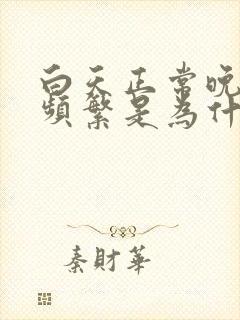 白天正常晚
頻繁是為什
秦財華